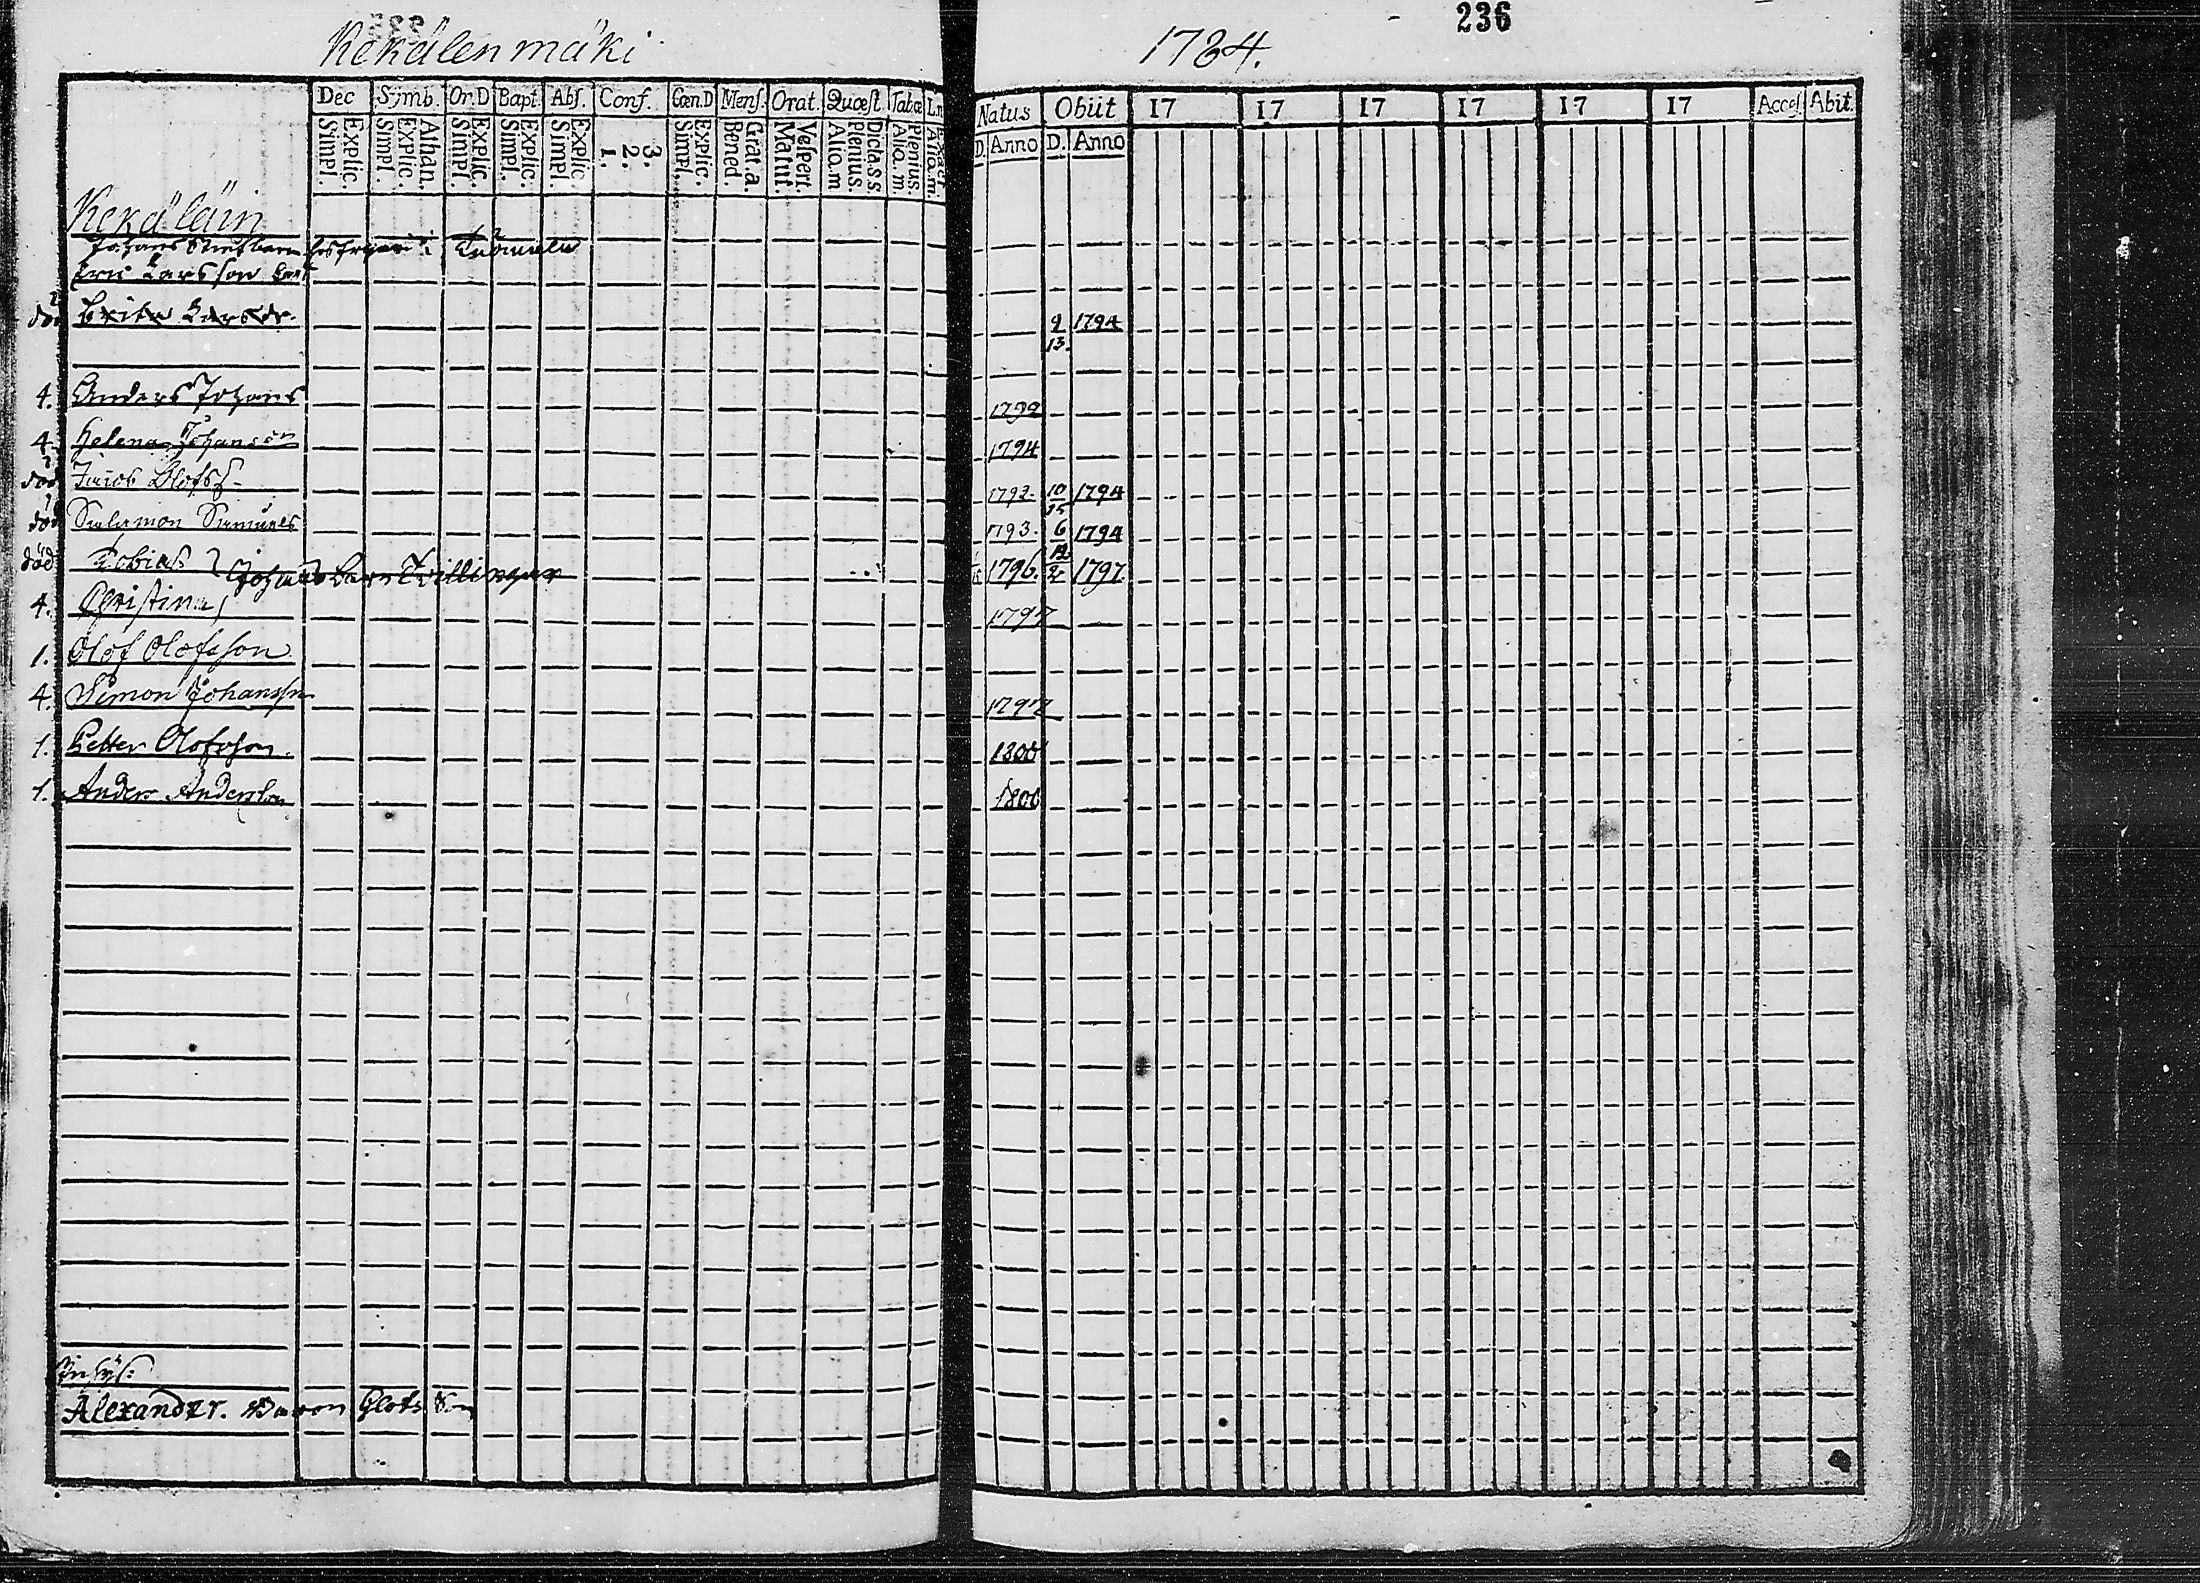 Kekälen mäki
1784.
236
Dec Symb. Or.D Bapt. Abs. Conf. Cœn.D Mens. Orat. Quæst. Tabæ
Natus Obiit 17 17 17 17 17 17 Acces. Abit.
Simpl. Explic. Simpl. Explic. Athan. Simpl. Explic. Simpl. Explic. Simpl. Explic. 1. 2. 3. Simpl. Explic. Bened. Grat.a. Matut. Vespert. Alio.m Plenius. Dicla.s.s. Alio.m. Plenius. Alio.m.
D. Anno D. Anno
Kekäläin
Johans
Eric Larsson
död Brita Larsdr. 9 13. 1794
4. Anders Johans 1799
4. Helena Johanss 1794
död Jacob Olofss 1793. 10 15 1794
död Salomon Samuels 1793. 6 1794
död Tobias Johans barn Tvillingar 1796. 2 1797
4. Christina 1797
1. Olof Olofsson
4. Simon Johansson 1797
1. Petter Olofsson. 1800
1. Anders Andersson 1800
Inhys:
Alexander. Olofs Son